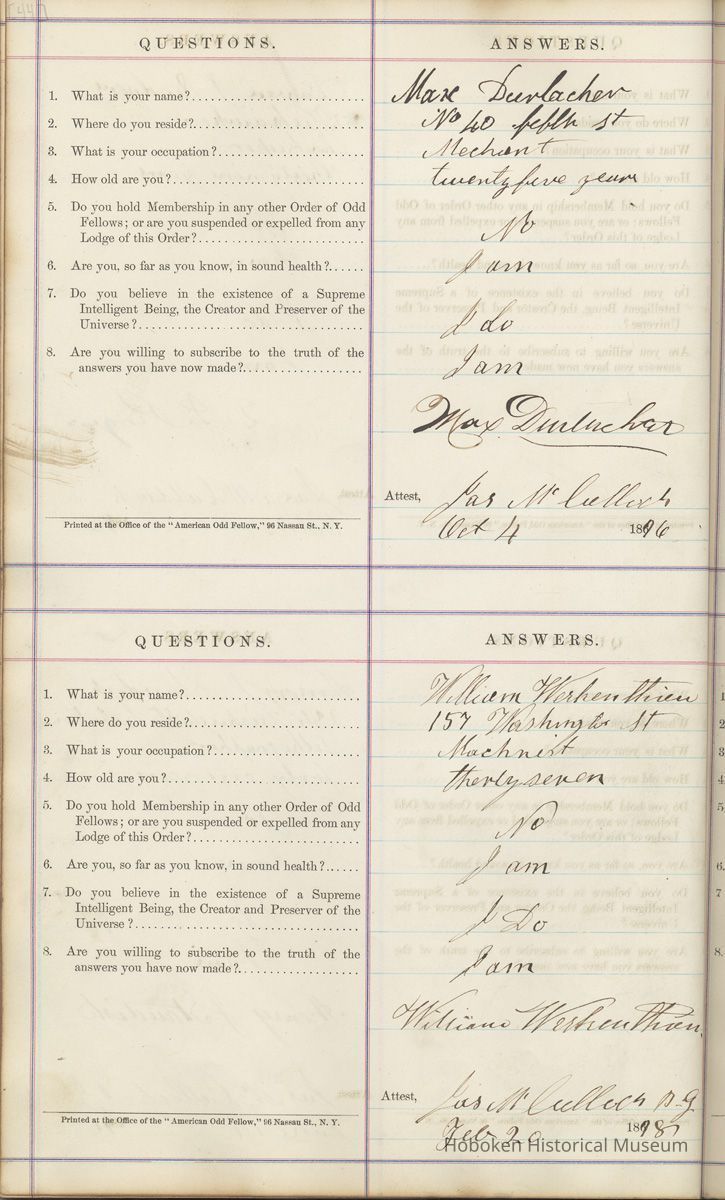 [44]
QUESTIONS.
ANSWERS.
1. What is your name?
Max Durlacher
2. Where do you reside?
No 40 fifth st
3. What is your occupation?
Mechant
4. How old are you?
twentyfive years
5. Do you hold Membership in any other Order of Odd
Fellows; or are you suspended or expelled from any
Lodge of this Order?
No
6. Are you, so far as you know, in sound health?
I am
7. Do you believe in the existence of a Supreme
Intelligent Being, the Creator and Preserver of the
Universe?
I do
8. Are you willing to subscribe to the truth of the
answers you have now made?
I am
Max Durlacher
Attest, Jas McCulloch
Oct 4 1876
Printed at the Office of the "American Odd Fellow," 96 Nassau St., N. Y.
QUESTIONS.
ANSWERS.
1. What is your name?
William Werkenthien
2. Where do you reside?
157 Washington St
3. What is your occupation?
Machnist
4. How old are you?
therlyseven
5. Do you hold Membership in any other Order of Odd
Fellows; or are you suspended or expelled from any
Lodge of this Order?
No
6. Are you, so far as you know, in sound health?
I am
7. Do you believe in the existence of a Supreme
Intelligent Being, the Creator and Preserver of the
Universe?
I Do
8. Are you willing to subscribe to the truth of the
answers you have now made?
I am
William Werkenthien.
Attest, Jas McCulloch
Feb 20 1878
Printed at the Office of the "American Odd Fellow," 96 Nassau St., N. Y.
Hoboken Historical Museum